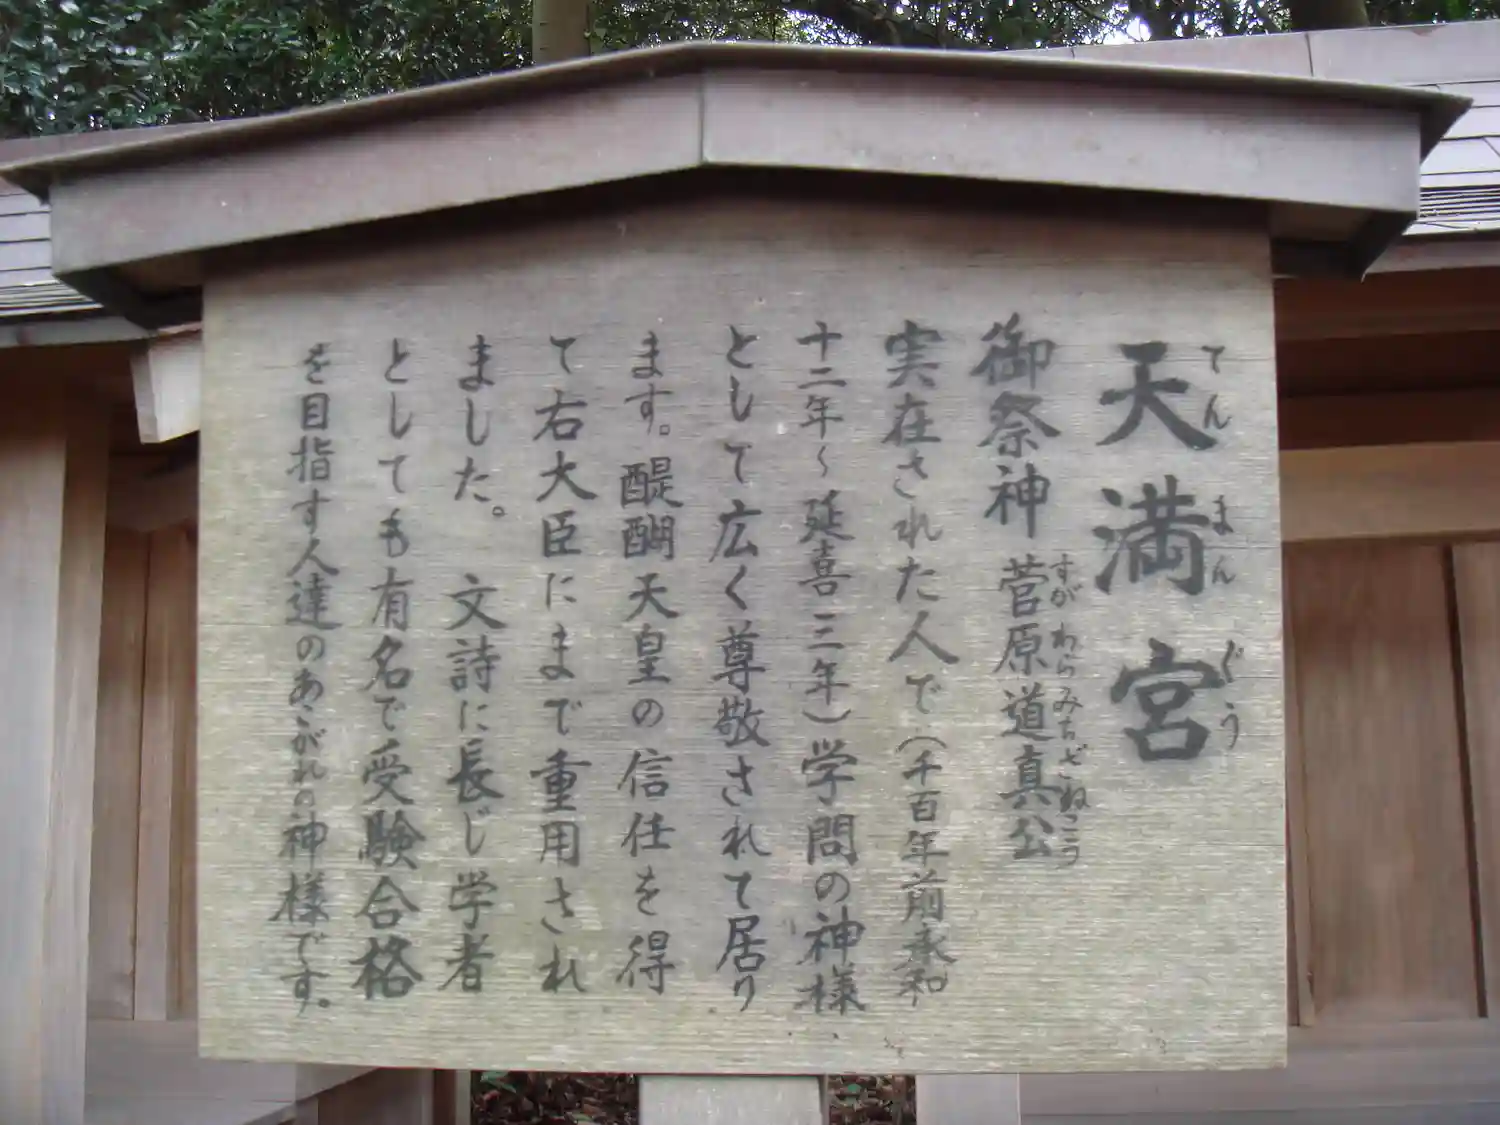 天満宮
てんまんぐう
御祭神 菅原道真公
すがわらみちざねこう
実在された人で(千百年前承和
十二年~延喜三年)学問の神様
として広く尊敬されて居り
ます。醍醐天皇の信任を得
て右大臣にまで重用され
ました。 文詩に長じ学者
としても有名で受験合格
を目指す人達のあこがれの神様です。